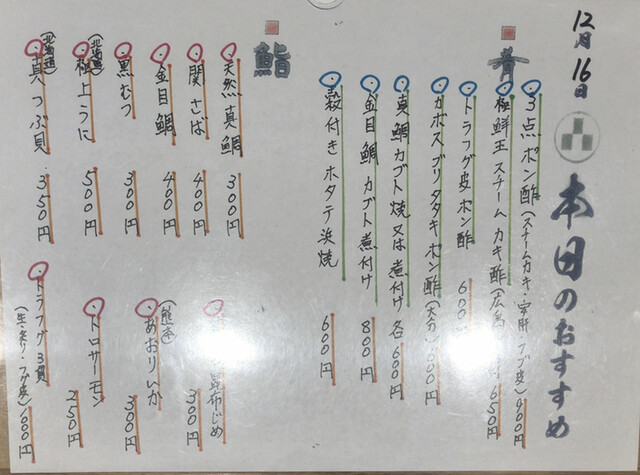 12月16日
本日のおすすめ
肴
3点ポン酢(スチームカキ・安肝・フグ皮)900円
極鮮王スチームカキ酢(広島 付650円
トラフグ皮ポン酢 600
カボスブリタタキポン酢(大分)600円
真鯛カブト焼又は煮付け 各600円
金目鯛カブト煮付け 800円
殻付きホタテ浜焼 600円
鮨
天然真鯛 300円
関さば 400円
金目鯛 400円
黒むつ 300円
(北海道)極上うに 500円
(北海道)真つぶ貝 350円
昆布じめ 300円
(熊本)あおりいか 300円
トロサーモン 250円
トラフグ3貫(生・炙り・フグ皮)1000円